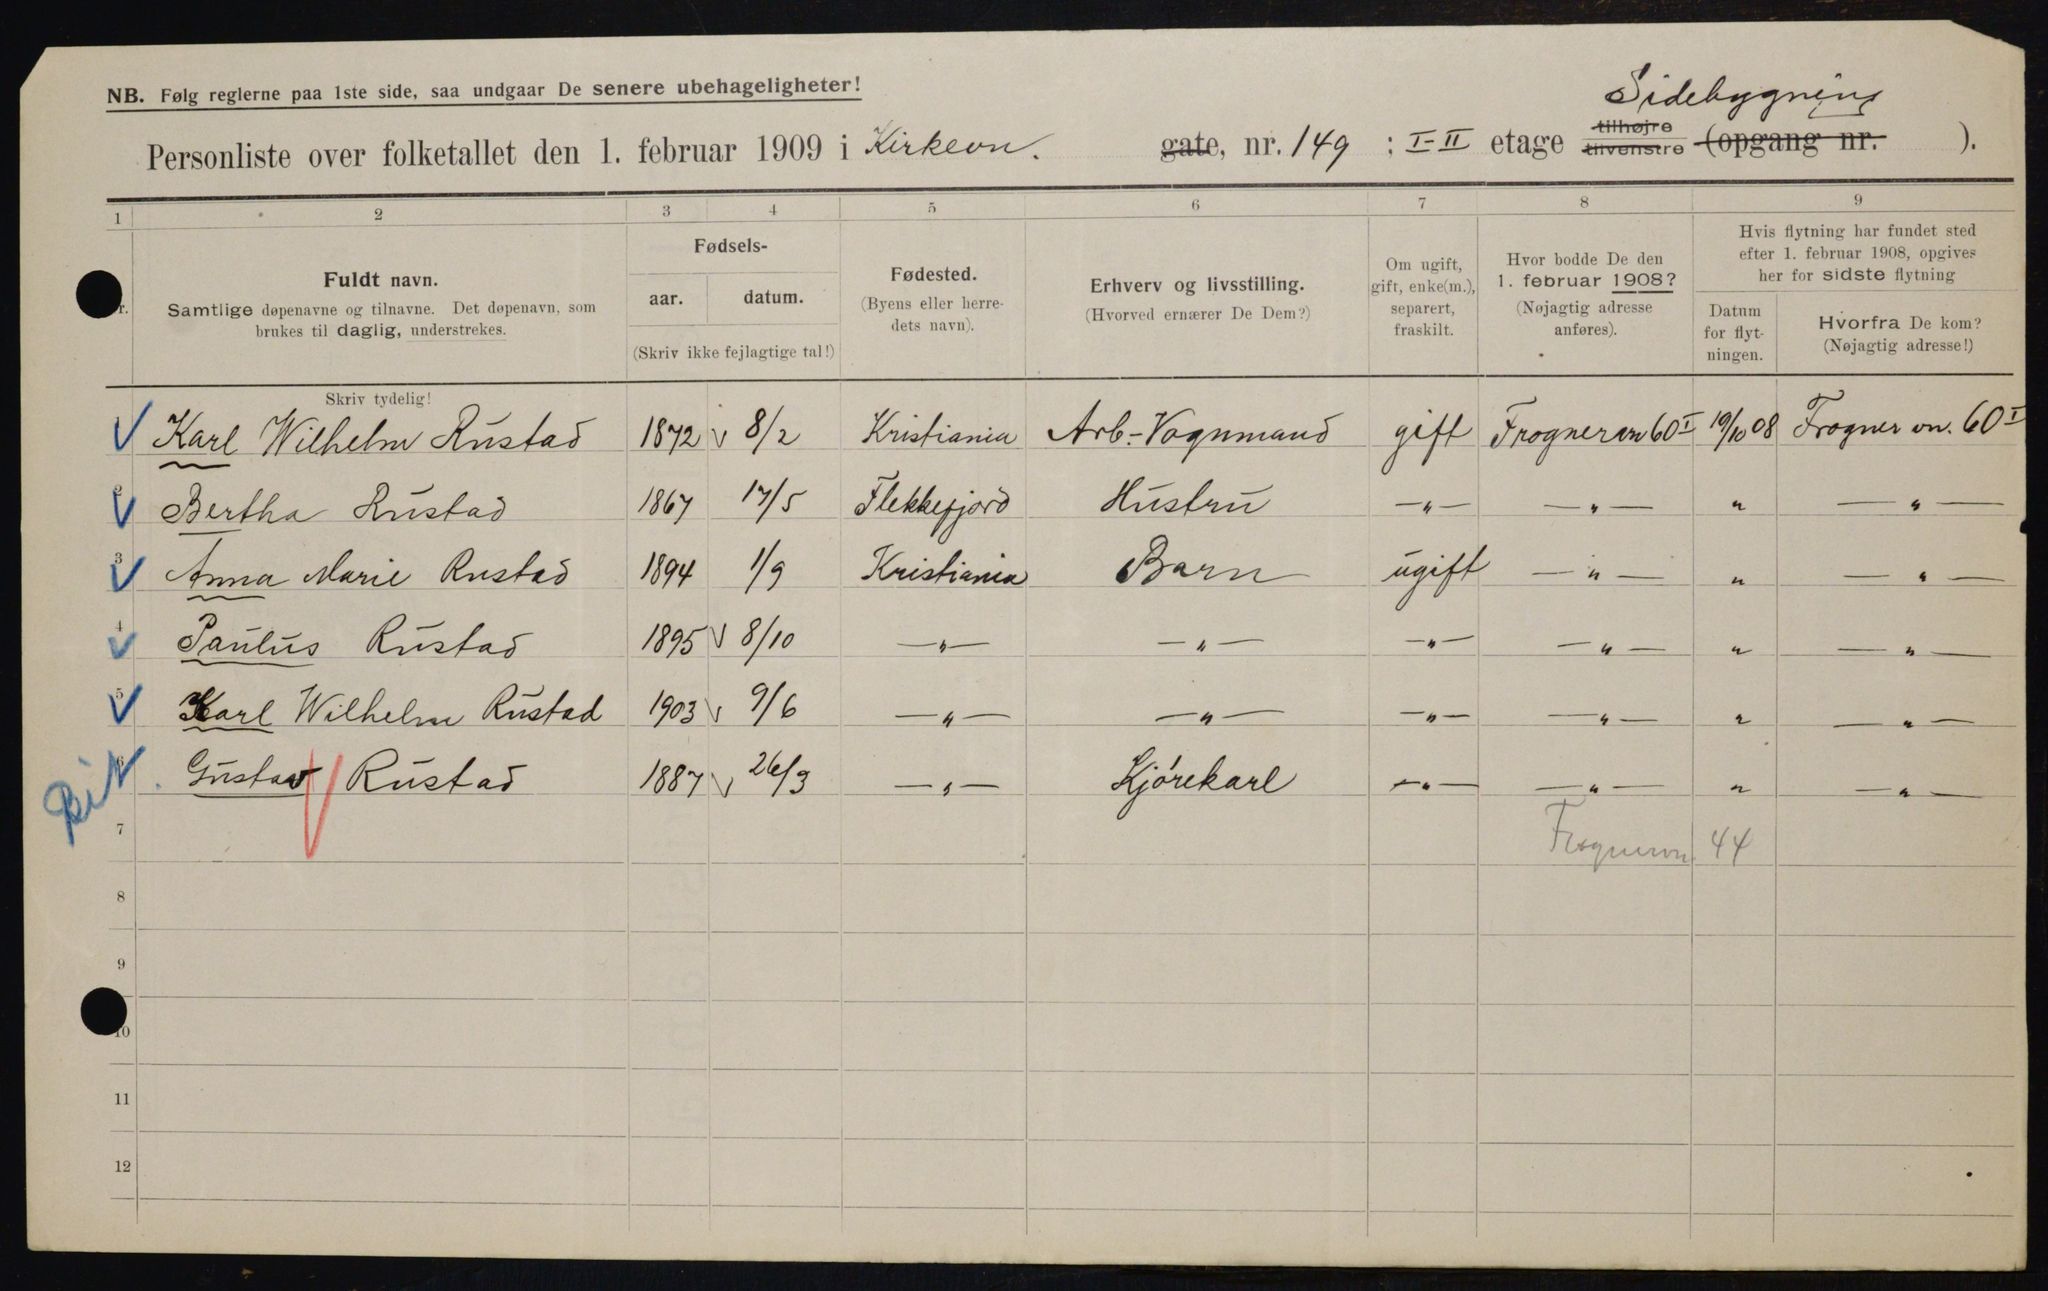 NB. Følg reglerne paa 1ste side, saa undgaar De senere ubehageligheter!
Sidebygning
Personliste over folketallet den 1. februar 1909 i Kirkevn. gate, nr. 149 ; I-II etage tilhøjre tilvenstre (opgang nr. ).
1 2 3 4 5 6 7 8 9
Fuldt navn.
Samtlige døpenavne og tilnavne. Det døpenavn, som
brukes til daglig, understrekes.
Fødsels-
aar. datum.
(Skriv ikke fejlagtige tal!)
Fødested.
(Byens eller herre-
dets navn).
Erhverv og livsstilling.
(Hvorved ernærer De Dem?)
Om ugift,
gift, enke(m.),
separert,
fraskilt.
Hvor bodde De den
1. februar 1908?
(Nøjagtig adresse
anføres).
Hvis flytning har fundet sted
efter 1. februar 1908, opgives
her for sidste flytning
Datum
for flyt-
ningen.
Hvorfra De kom?
(Nøjagtig adresse!)
Skriv tydelig!
Karl Wilhelm Rustad 1872 8/2 Kristiania Arb.-Vognmand gift Frognervn 60 I 19/10 08 Frogner vn. 60 I
2 Bertha Rustad 1867 17/5 Flekkefjord Hustru —„— —„— „ —„—
3 Anna Marie Rustad 1894 1/9 Kristiania Barn ugift —„— „ —„—
4 Paulus Rustad 1895 8/10 —„— —„— —„— —„— „ —„—
5 Karl Wilhelm Rustad 1903 9/6 —„— —„— —„— —„— „ —„—
6 Gustav Rustad 1887 26/3 —„— Kjørekarl —„— —„— „ —„—
7 Frognervn. 44
8
9
10
11
12